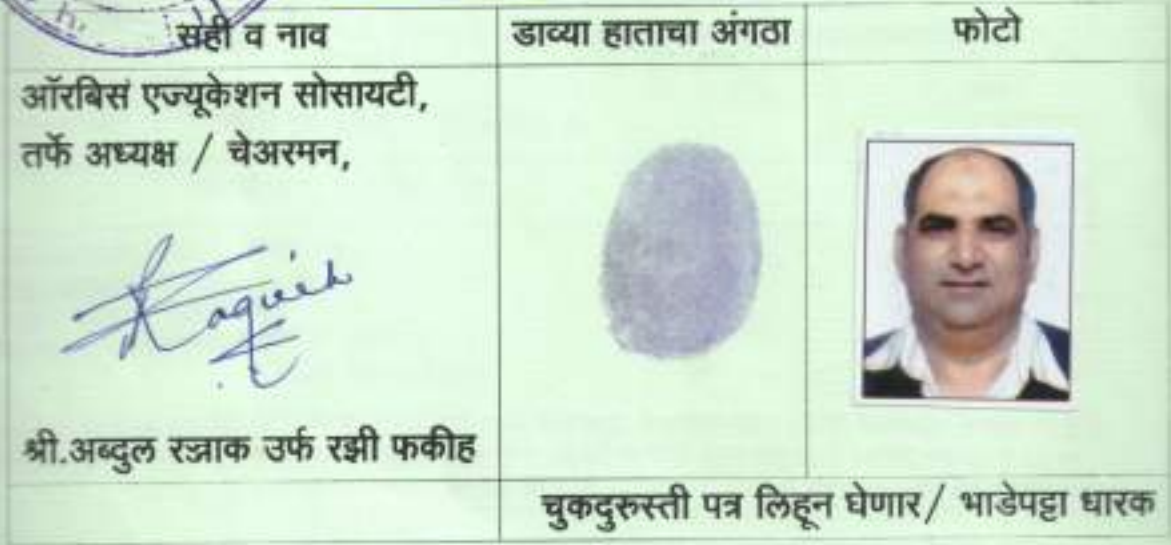 सही व नाव
डाव्या हाताचा अंगठा
फोटो
ऑरबिस एज्यूकेशन सोसायटी,
तर्फे अध्यक्ष / चेअरमन,
श्री.अब्दुल रज्जाक उर्फ रझी फकीह
चुकदुरुस्ती पत्र लिहून घेणार/ भाडेपट्टा धारक